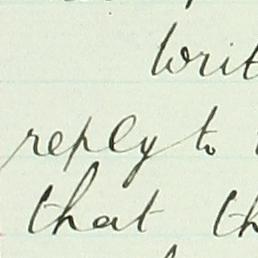 writ
reply to
that th